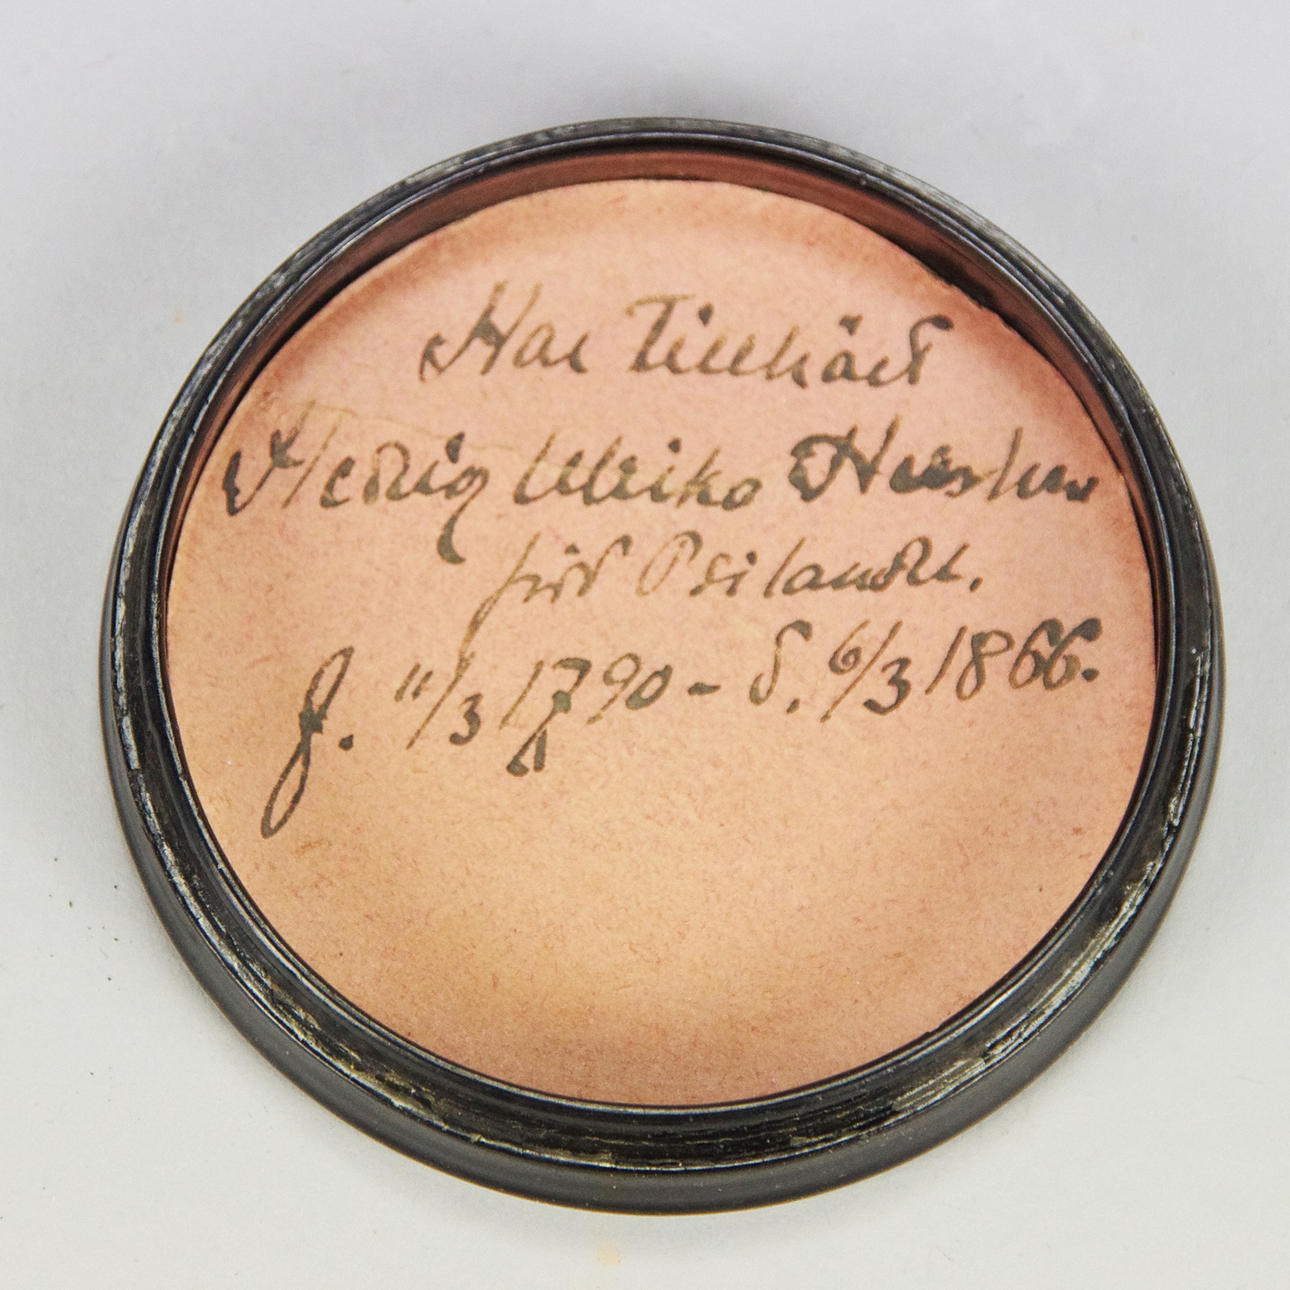 Har Tillhört
Hedvig Ulrika
född Psilander.
f. 11/3 1790 - d. 6/3 1866.